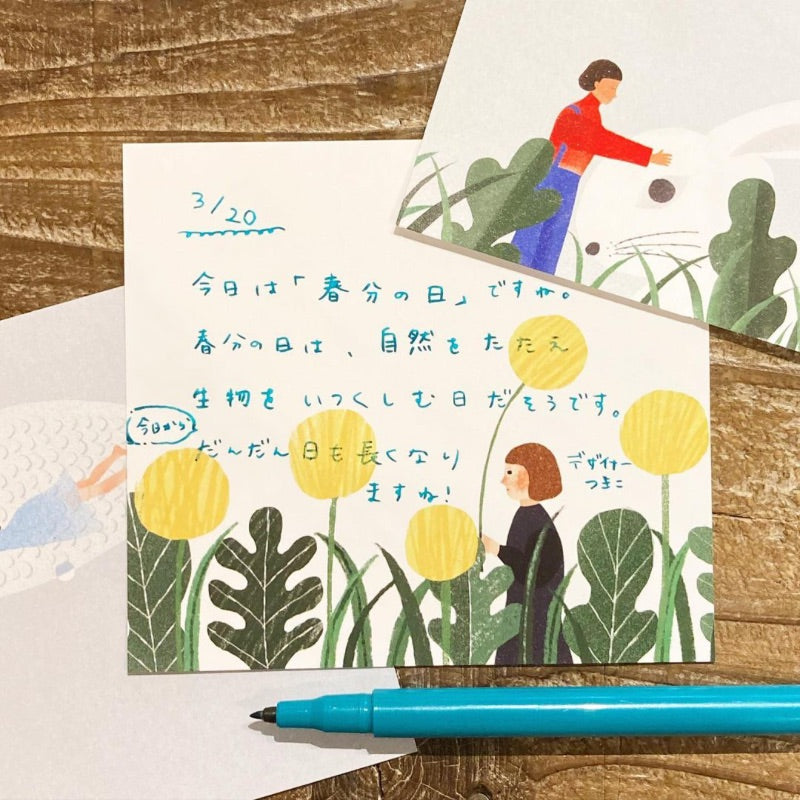 3/20
今日は「春分の日」ですね。
春分の日は、自然をたたえ
生物をいつくしむ日だそうです。
今日から
だんだん日も長くなり
ますね!
デザイナー
つきこ